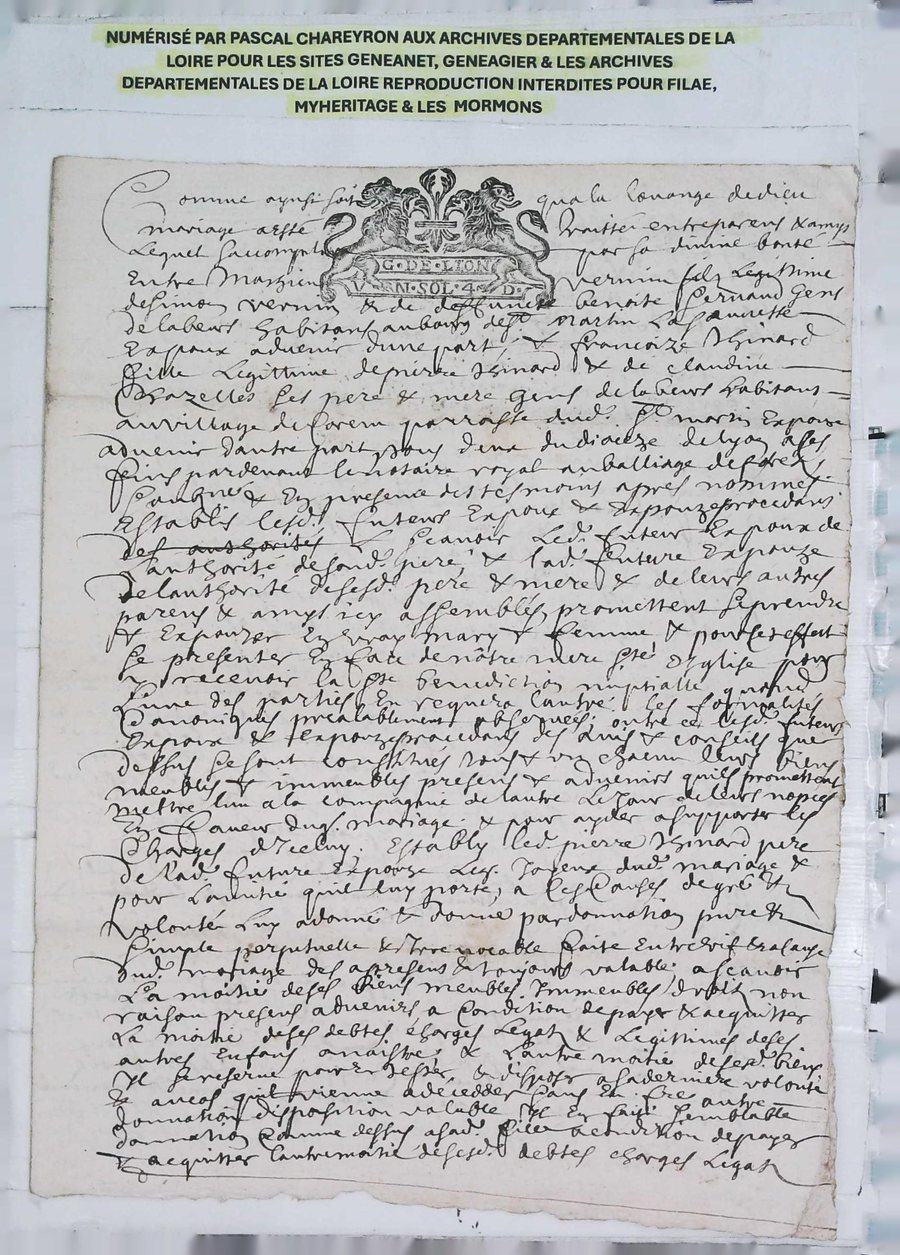 NUMÉRISÉ PAR PASCAL CHAREYRON AUX ARCHIVES DEPARTEMENTALES DE LA
LOIRE POUR LES SITES GENEANET, GENEAGIER & LES ARCHIVES
DEPARTEMENTALES DE LA LOIRE REPRODUCTION INTERDITES POUR FILAE,
MYHERITAGE & LES MORMONS
G·DE·LION
N·SOL·4·D·
Comme aynsi soit qua la louange de dieu
mariage aesté traitté entre parens & amys
Lequel saccomplira par sa divine bonté
Entre Mathieu vernin filz Legittime
de Simon vernin & de deffuncte benoite gens
de labeurs habitans au bourg de St martin La sauvetté
Expoux advenir dune part, & francoize Thinard
fille Legittime de pierre Thinard & de claudine
Chazelles ses pere & mere gens de labeurs habitans
au village de parroisse dud. St martin Expouze
advenir dautre part tous deux du dioceze de lyon a ces
fins pardevant le notaire royal au balliage de forez
soubzne & En presence des tesmoins apres nommes
Establis lesd. futurs Expoux & Expouze procedans
des authorités & scavoir Led. futur Expoux de
lauthorité de sond. pere & lad. future Expouze
de lauthorité de sesd. pere & mere & de leurs autres
parens & amys icy assemblés promettent se prendre
& Expouzer En vray mary & femme & pour cet effect
se presenter En face de nôtre mere Ste Esglise pour
y recevoir la Ste benediction nuptialle quand
lune des parties En requerra lautre les formalités
Canoniques prealablement observees outre ce lesd. futurs
Expoux & Expouze procedans des & conseils que
dessus se sont constitués tous & un chacun leurs biens
meubles & immeubles presens & advenirs quils promettent
mettre lun a la compagnie de lautre Le Jour de leurs nopces
En faveur dud. mariage & pour ayder a supporter les
Charges Establly led. pierre Thinard pere
de lad. future Expouze Leq. Joyeux dud. mariage &
pour Lamitié quil luy porte, a ces Causes de gré &
volonté Luy a donné & donne par donnation pure &
simple perpetuelle & Irrevocable faite Entre vif & a cause
dud. mariage des a present & toujours valable, a scavoir
La moitié de ses biens meubles Immeubles droit nom
raison presens advenirs a Condition de payer & acquitter
La moitié de ses debtes charges Legat & Legitimes de ses
autres Enfans a naistre & Lautre moitié de sesd. biens
Il se reserve pour En tester & disposer a sa derniere volonté
& au cas quil vienne a decedder sans En fre autre
donnation disposition valable Il En fait semblable
donnation Comme dessus a sad. fille a condition de payer
& acquitter lautre moitié de sesd. debtes charges Legat